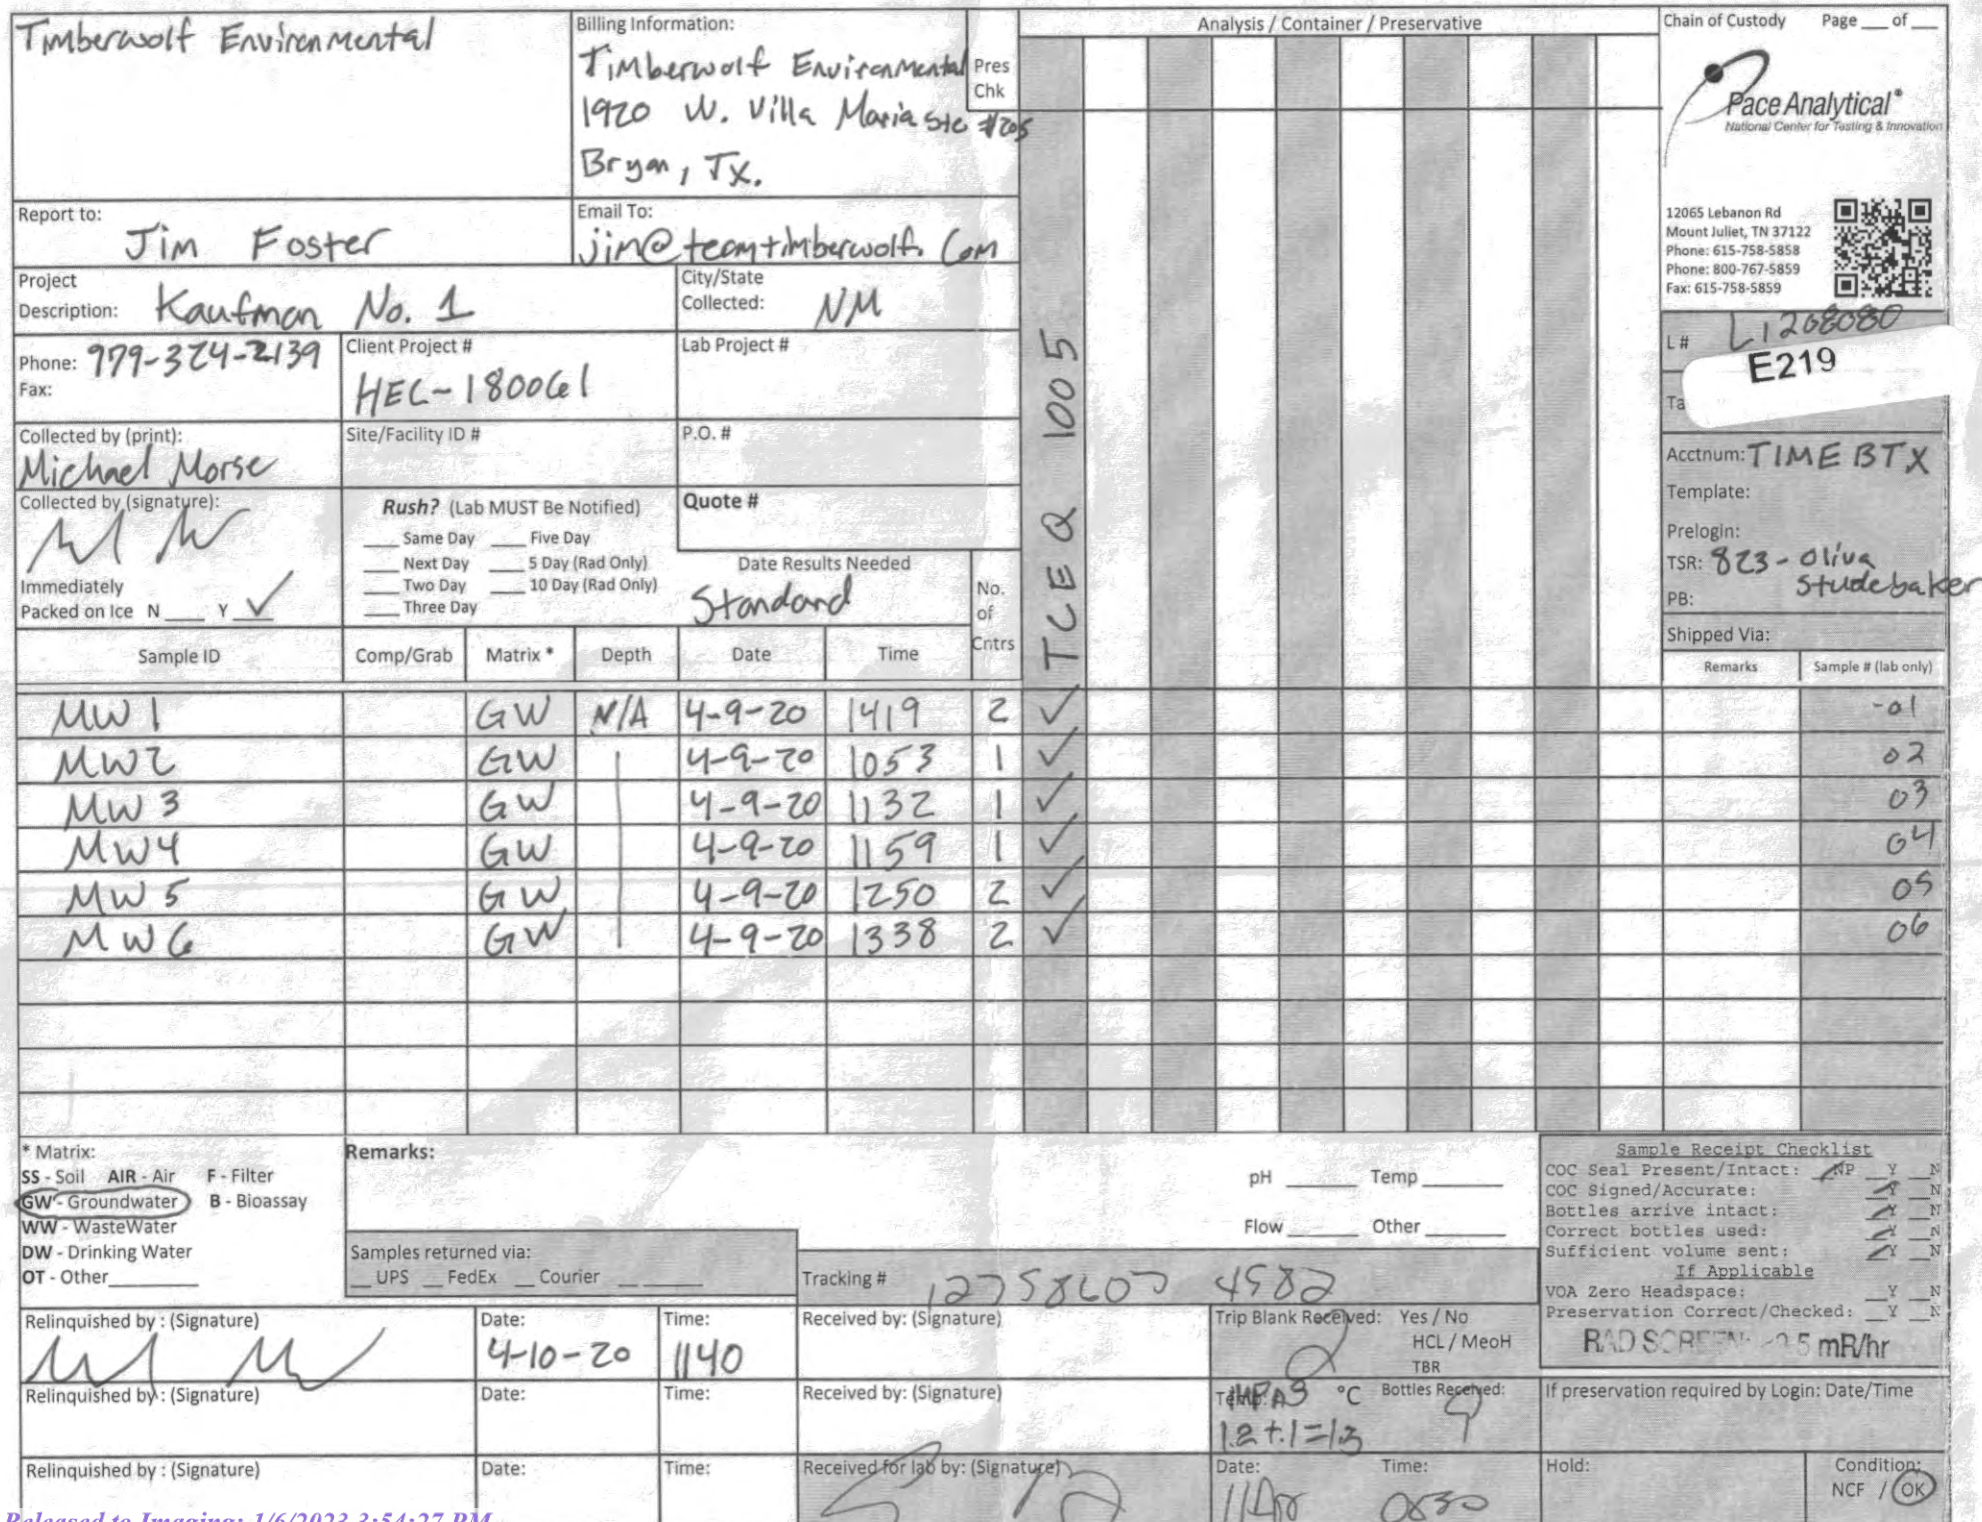 Timberwolf Environmental
Billing Information:
Timberwolf Environmental
1920 W. Villa Maria Ste #205
Bryan, Tx.
Pres
Chk
Analysis / Container / Preservative
Chain of Custody Page ___ of ___
Pace Analytical®
National Center for Testing & Innovation
12065 Lebanon Rd
Mount Juliet, TN 37122
Phone: 615-758-5858
Phone: 800-767-5859
Fax: 615-758-5859
Report to:
Jim Foster
Email To:
jim@teamtimberwolf.com
Project
Description: Kaufman No. 1
City/State
Collected: NM
Phone: 979-324-2139
Fax:
Client Project #
HEC-180061
Lab Project #
L # L1208080
E219
Ta
Collected by (print):
Michael Morse
Site/Facility ID #
P.O. #
Acctnum: TIMEBTX
Template:
Prelogin:
TSR: 823 - Oliva
Studebaker
PB:
Shipped Via:
Collected by (signature):
Immediately
Packed on Ice N ___ Y ✓
Rush? (Lab MUST Be Notified)
___ Same Day ___ Five Day
___ Next Day ___ 5 Day (Rad Only)
___ Two Day ___ 10 Day (Rad Only)
___ Three Day
Quote #
Date Results Needed
Standard
No.
of
Cntrs
TCEQ 1005
Sample ID Comp/Grab Matrix * Depth Date Time Remarks Sample # (lab only)
MW 1 GW N/A 4-9-20 1419 2 ✓ -01
MW2 GW 4-9-20 1053 1 ✓ 02
MW 3 GW 4-9-20 1132 1 ✓ 03
MW4 GW 4-9-20 1159 1 ✓ 04
MW 5 GW 4-9-20 1250 2 ✓ 05
MW6 GW 4-9-20 1338 2 ✓ 06
* Matrix:
SS - Soil AIR - Air F - Filter
GW - Groundwater B - Bioassay
WW - WasteWater
DW - Drinking Water
OT - Other___
Remarks:
pH ___ Temp ___
Flow ___ Other ___
Samples returned via:
__ UPS __ FedEx __ Courier ___
Tracking # 12758607 4582
Sample Receipt Checklist
COC Seal Present/Intact: ✓NP _Y _N
COC Signed/Accurate: ✓Y _N
Bottles arrive intact: ✓Y _N
Correct bottles used: ✓Y _N
Sufficient volume sent: ✓Y _N
If Applicable
VOA Zero Headspace: _Y _N
Preservation Correct/Checked: _Y _N
RAD SCREEN: <0.5 mR/hr
Relinquished by : (Signature)
Date:
4-10-20
Time:
1140
Received by: (Signature)
Trip Blank Received: Yes / No
HCL / MeoH
TBR
Relinquished by : (Signature)
Date:
Time:
Received by: (Signature)
Temp: °C Bottles Received:
1.2+.1=1.3 9
If preservation required by Login: Date/Time
Relinquished by : (Signature)
Date:
Time:
Received for lab by: (Signature)
Date: Time:
0830
Hold:
Condition:
NCF / OK
Released to Imaging: 1/6/2023 3:54:27 PM